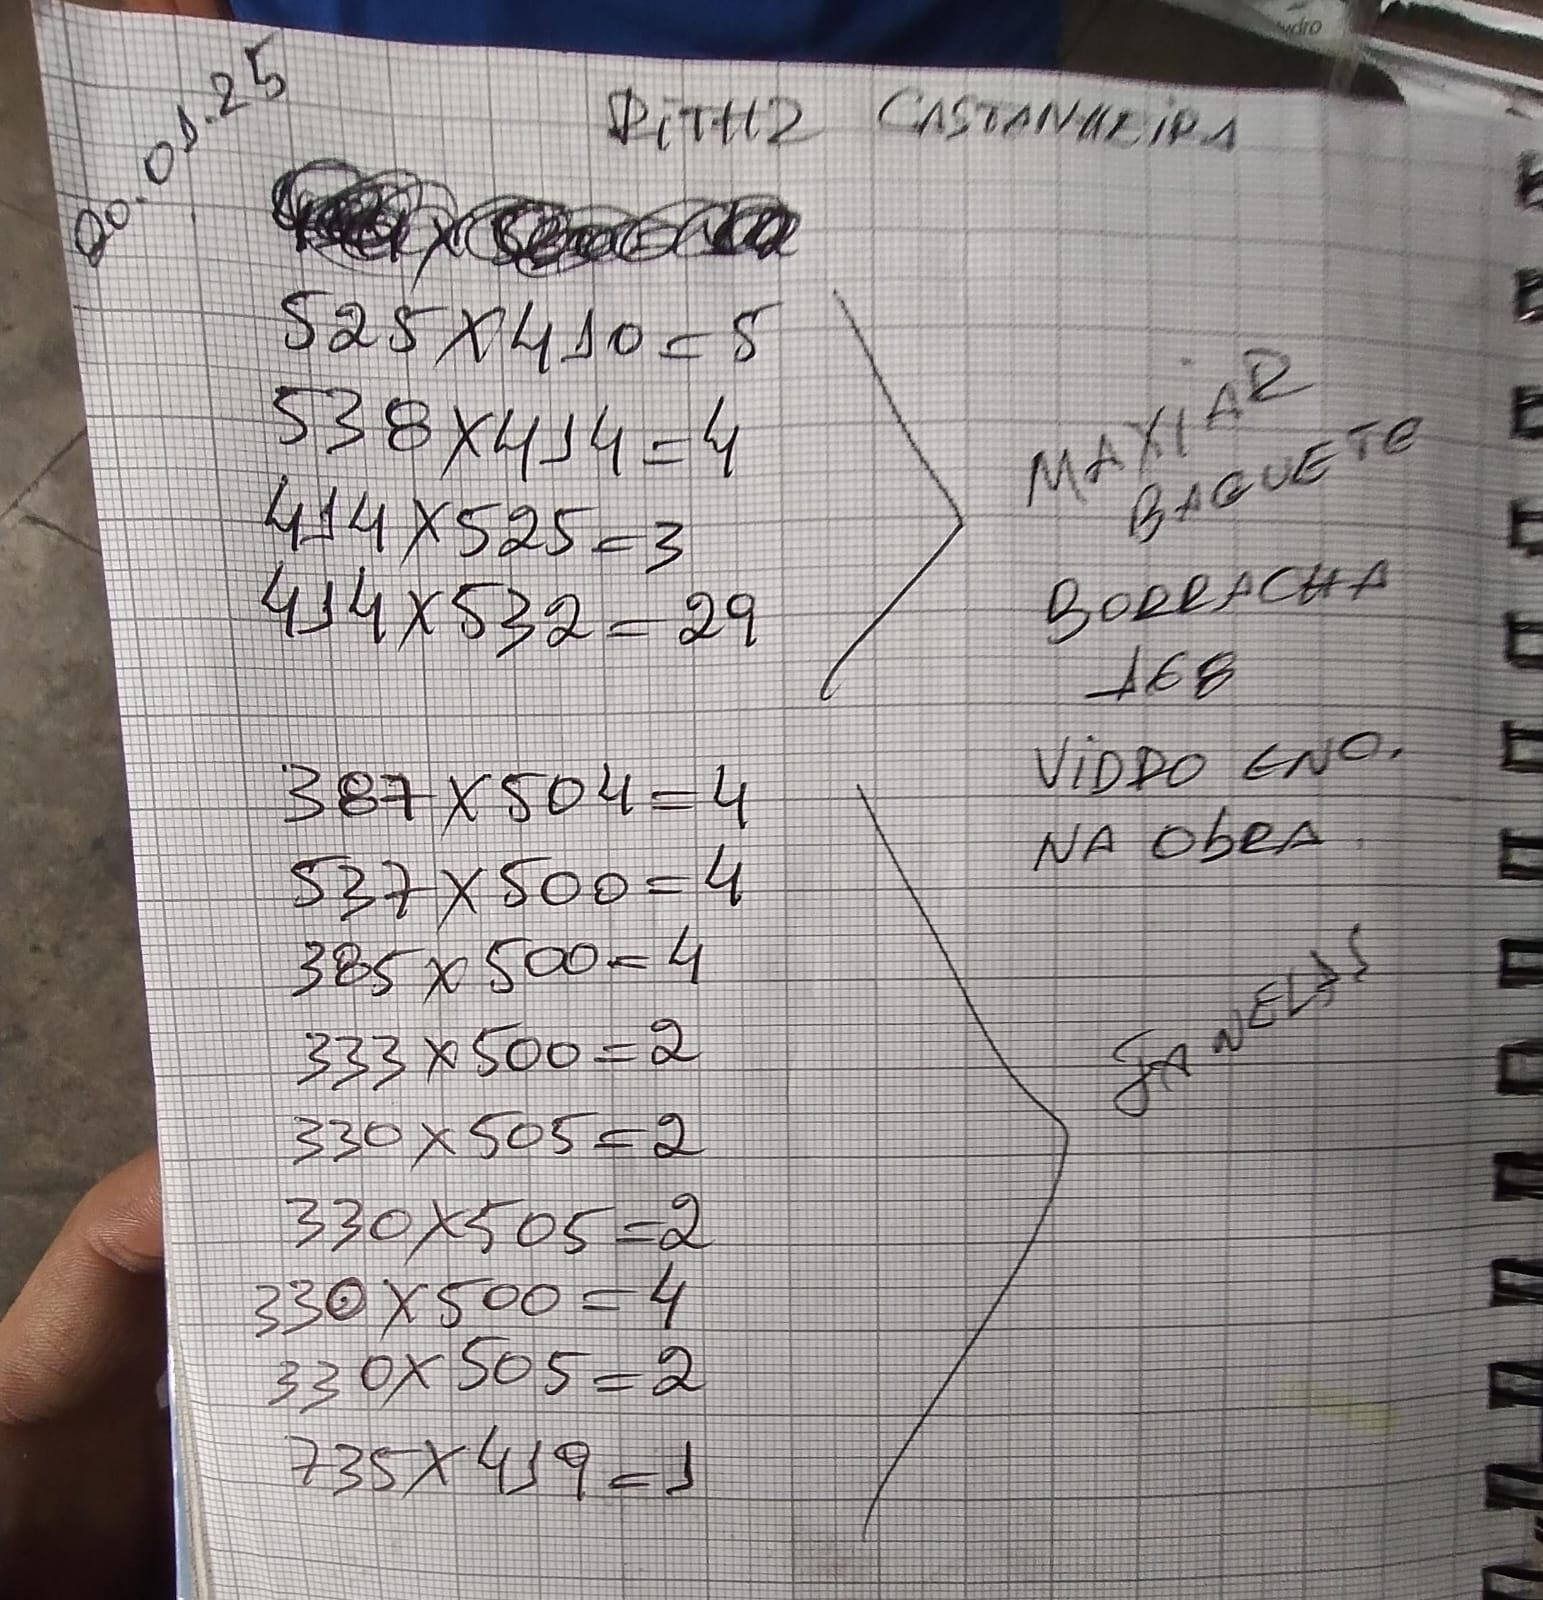 20.01.25
RITHZ CASTANHEIRA
525X410=5
538X414=4
414X525=3
414X532=29
MAXIAR
BAGUETE
BORRACHA
168
VIDRO ENO.
NA ObRA.
387X504=4
537X500=4
385X500=4
333X500=2
330X505=2
330X505=2
330X500=4
330X505=2
735X419=1
JANELAS